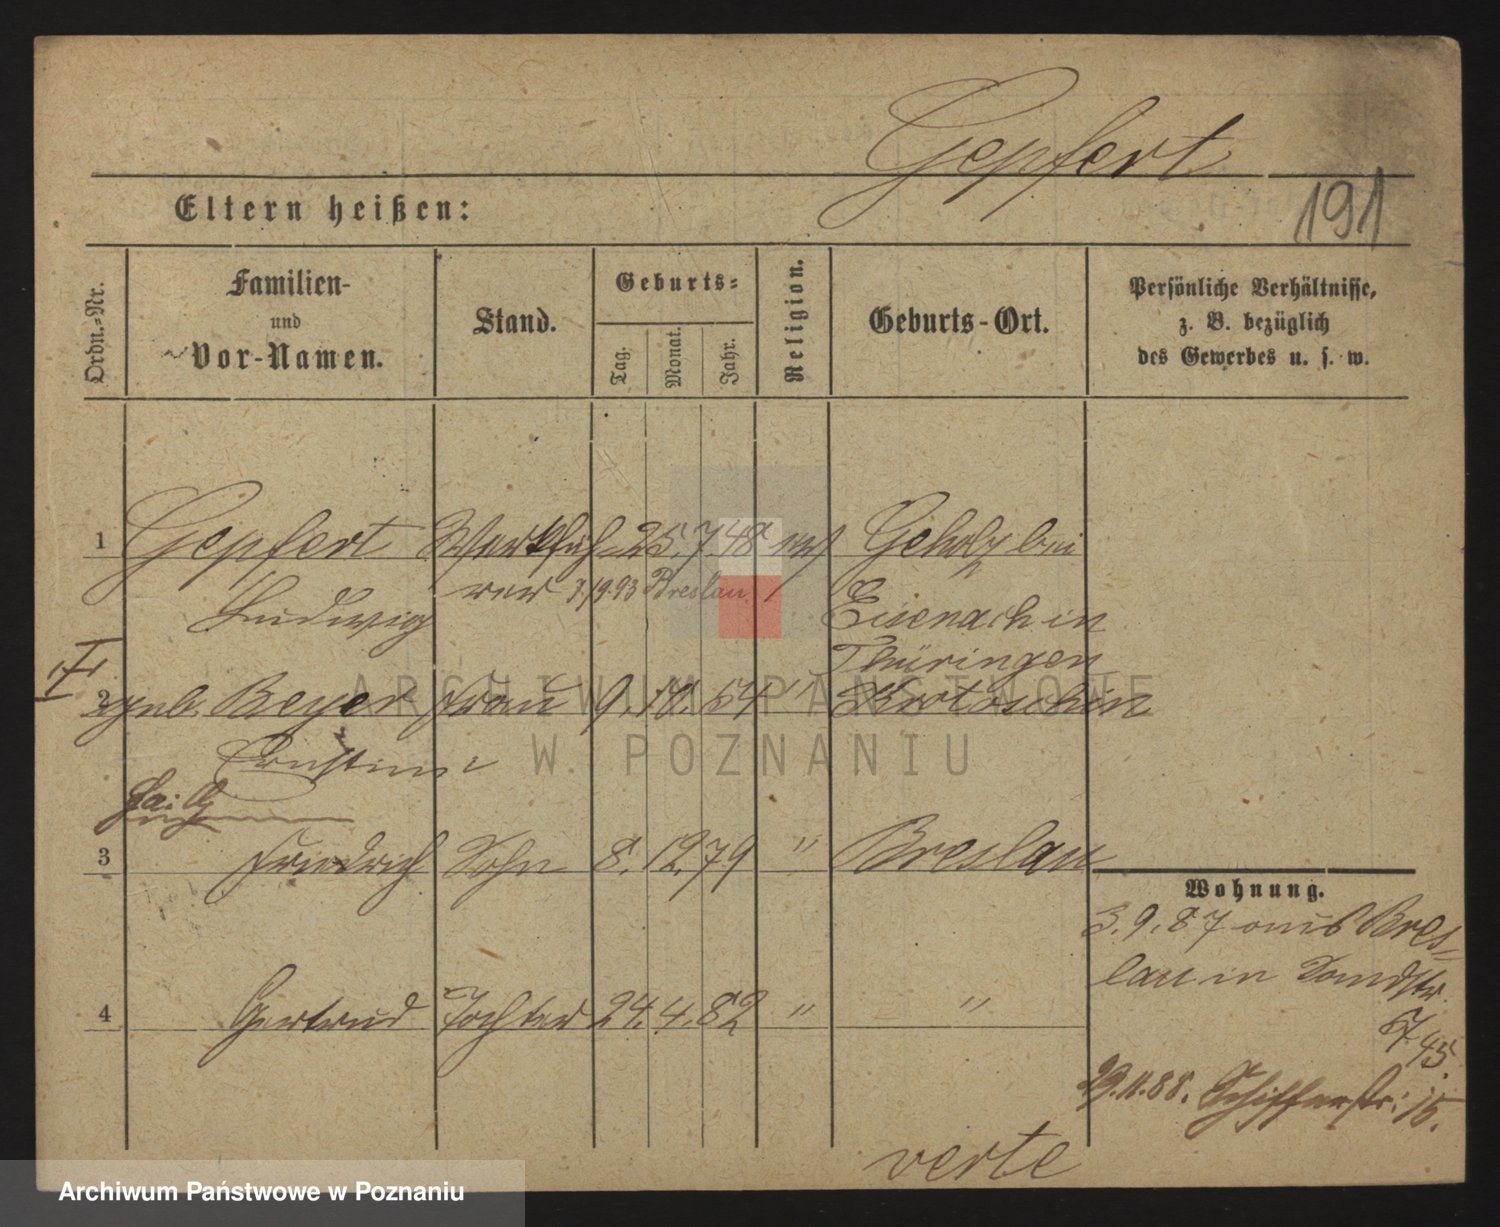 Gepfert
191
Eltern heißen:
Ordn.-Nr.
Familien-
und
Vor-Namen.
Stand.
Geburts-
Tag.
Monat.
Jahr.
Religion.
Geburts-Ort.
Persönliche Verhältnisse,
z. B. bezüglich
des Gewerbes u. s. w.
1 Gepfert Werkfüh- 25. 7 48 ev Geholz bei
Ludwig rer Breslau Eisenach in
Thüringen
2 geb. Beyer Frau 9. 10. 54 " Krotoschin
Ernstine
3 Friedrich Sohn 8. 12. 79 " Breslau
4 Gertrud Tochter 24. 4. 82 " "
Wohnung.
3. 9. 87 aus Bres-
lau in
29. 11. 88. Schifferstr. 15.
verte
ARCHIWUM PAŃSTWOWE
W POZNANIU
Archiwum Państwowe w Poznaniu